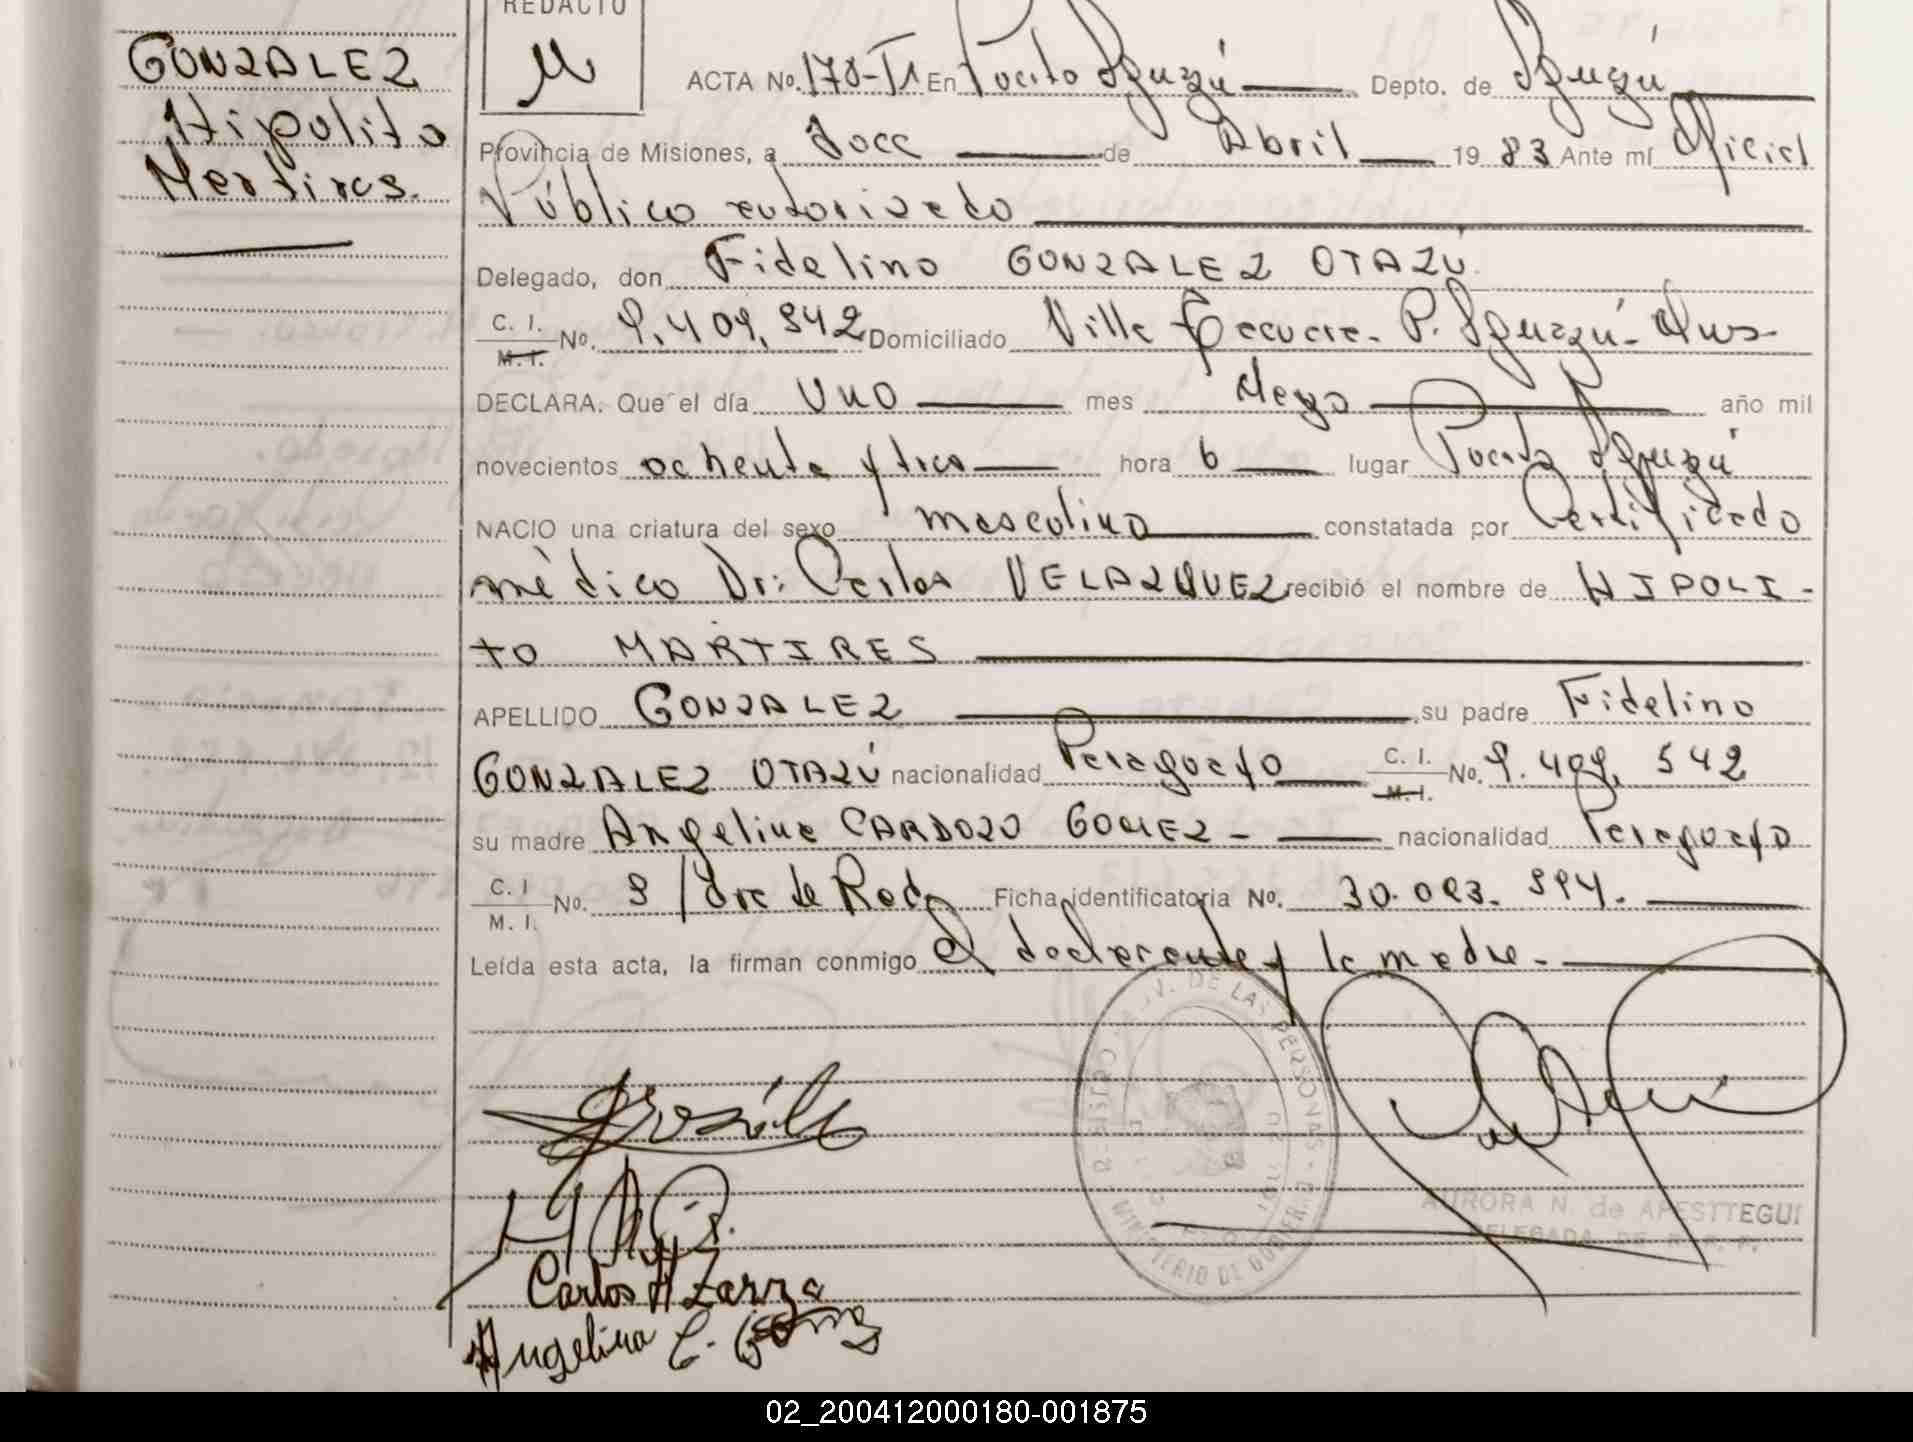 GONZALEZ
Hipolito
Martires.
REDACTO
ACTA No. 178-T1 En Puerto Iguazú Depto. de Iguazú
Provincia de Misiones, a doce de Abril 1983 Ante mí Oficial
Público autorizado
Delegado, don Fidelino GONZALEZ OTAZÚ
C. I. No. 9.409.542 Domiciliado Villa P. Iguazú-
M. I.
DECLARA. Que el día uno mes Mayo año mil
novecientos ochenta y tres hora 6 lugar Puerto Iguazú
NACIO una criatura del sexo masculino constatada por Certificado
médico Dr: Carlos VELAZQUEZ recibió el nombre de HIPOLI-
to MARTIRES
APELLIDO GONZALEZ su padre Fidelino
GONZALEZ OTAZÚ nacionalidad Paraguayo C. I. No. 9.409.542
M. I.
su madre Angelina CARDOZO GOMEZ - nacionalidad Paraguaya
C. I No. S/ Rad. Ficha identificatoria No. 30.023.994.
M. I.
Leída esta acta, la firman conmigo el declarante y la madre.-
DE LAS PERSONAS
MINISTERIO DE GOBIERNO
AURORA N. de APESTTEGUI
DELEGADA
Carlos H Zarza
Angelina C. Gomez
02_200412000180-001875